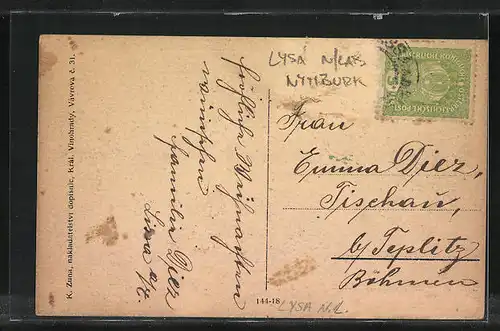 LYSÁ N/LAB.
NYMBURK
Fröhliche Weihnachten
wünschen
Familie Diez
Lissa a/E.
Frau
Emma Diez,
Tischau,
b/ Teplitz
Böhmen
K. Zuna, nakladatelství dopisnic, Král. Vinohrady, Vávrova č. 31.
144-18
LYSA N.L.